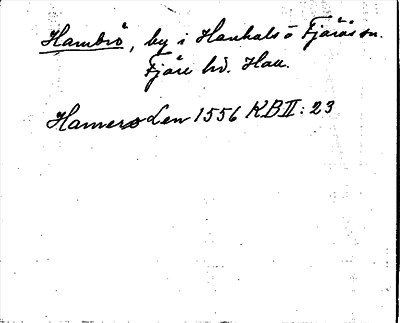 Hambrö, by i Hanhals o Fjärås sn.
Fjäre hd. Hall.
Hamerø Len 1556 KBII: 23